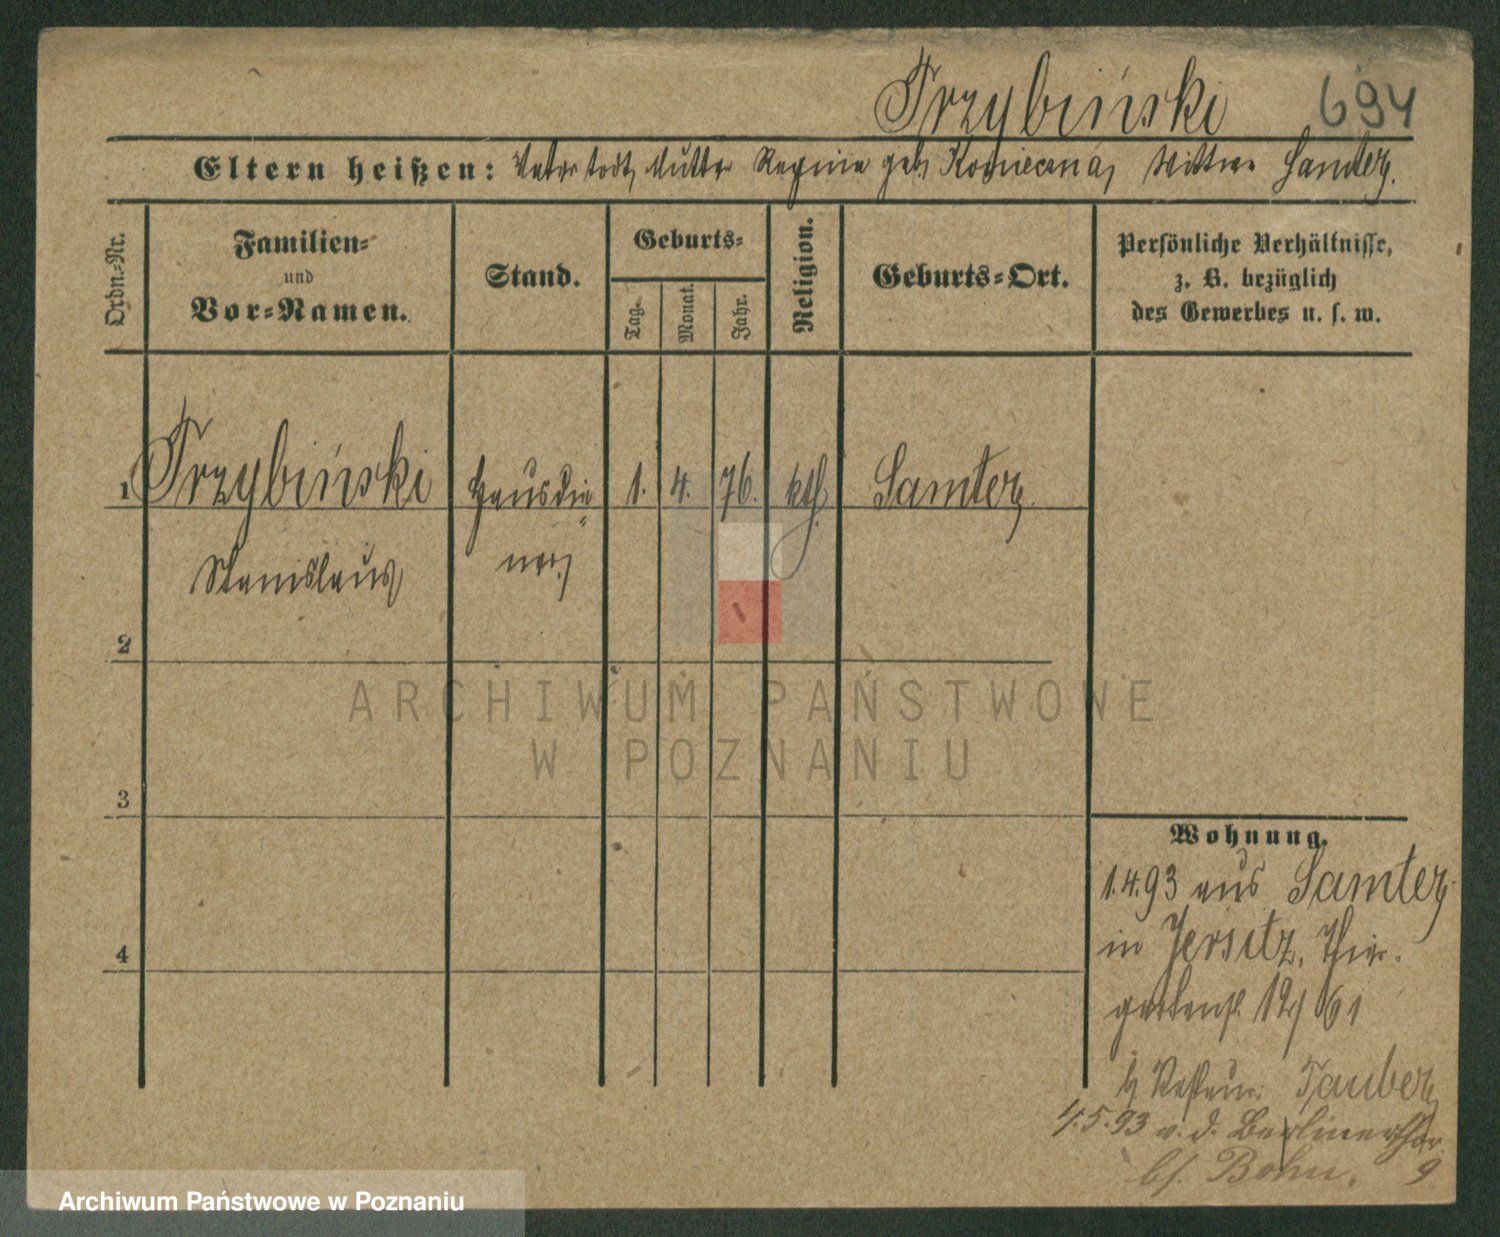 Trzybiński 694
Eltern heißen: Vater todt, Mutter Regine geb. Konieczna, Wittwe Samter.
Ordn.-Nr.
Familien-
und
Vor-Namen.
Stand.
Geburts-
Tag.
Monat.
Jahr.
Religion.
Geburts-Ort.
Persönliche Verhältnisse,
z. B. bezüglich
des Gewerbes u. s. w.
1 Trzybiński Hausdie- 1. 4. 76. kth. Samter.
Stanislaus ner.
2
3
4
Wohnung.
1.4.93 aus Samter
in Jersitz, Thier-
gartenst. 12/61
b/ Restaur. Tauber
4.5.93 v. d. Berlinerthor
9
b/. Bohn.
ARCHIWUM PAŃSTWOWE
W POZNANIU
Archiwum Państwowe w Poznaniu